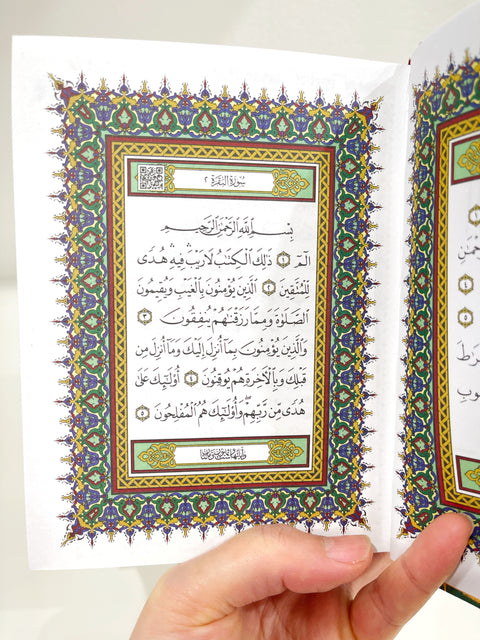 سورة البقرة ٢
بِسْمِ ٱللَّهِ ٱلرَّحْمَٰنِ ٱلرَّحِيمِ
الٓمٓ ١ ذَٰلِكَ ٱلْكِتَٰبُ لَا رَيْبَۛ فِيهِۛ هُدًى
لِّلْمُتَّقِينَ ٢ ٱلَّذِينَ يُؤْمِنُونَ بِٱلْغَيْبِ وَيُقِيمُونَ
ٱلصَّلَوٰةَ وَمِمَّا رَزَقْنَٰهُمْ يُنفِقُونَ ٣
وَٱلَّذِينَ يُؤْمِنُونَ بِمَآ أُنزِلَ إِلَيْكَ وَمَآ أُنزِلَ مِن
قَبْلِكَ وَبِٱلْءَاخِرَةِ هُمْ يُوقِنُونَ ٤ أُو۟لَٰٓئِكَ عَلَىٰ
هُدًى مِّن رَّبِّهِمْ ۖ وَأُو۟لَٰٓئِكَ هُمُ ٱلْمُفْلِحُونَ ٥